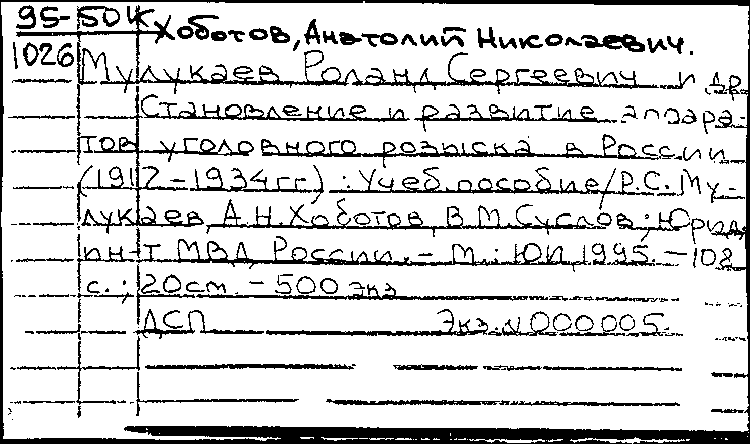 95-50к Хоботов, Анатолий Николаевич.
1026 Мулукаев, Роланд Сергеевич и др.
Становление и развитие аппара-
тов уголовного розыска в России
(1917-1934 гг.) : Учеб. пособие / Р.С. Му-
лукаев, А.Н. Хоботов, В.М. Суслов; Юрид.
ин-т МВД России. – М.: ЮИ, 1995. – 108
с.; 20см. – 500 экз
ДСП Экз. N 000005.